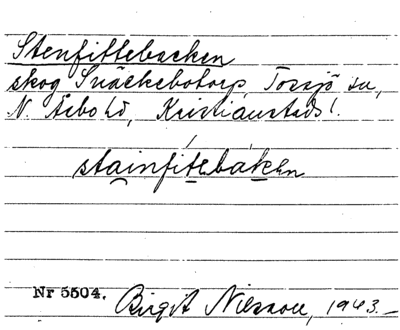 Stenfittebacken
skog Snäckebotorp, Torsjö sn,
N. Åsbo hd, Kristianstads l.
stainfitebáken
Nr 5504. Birgit Nilsson, 1943.